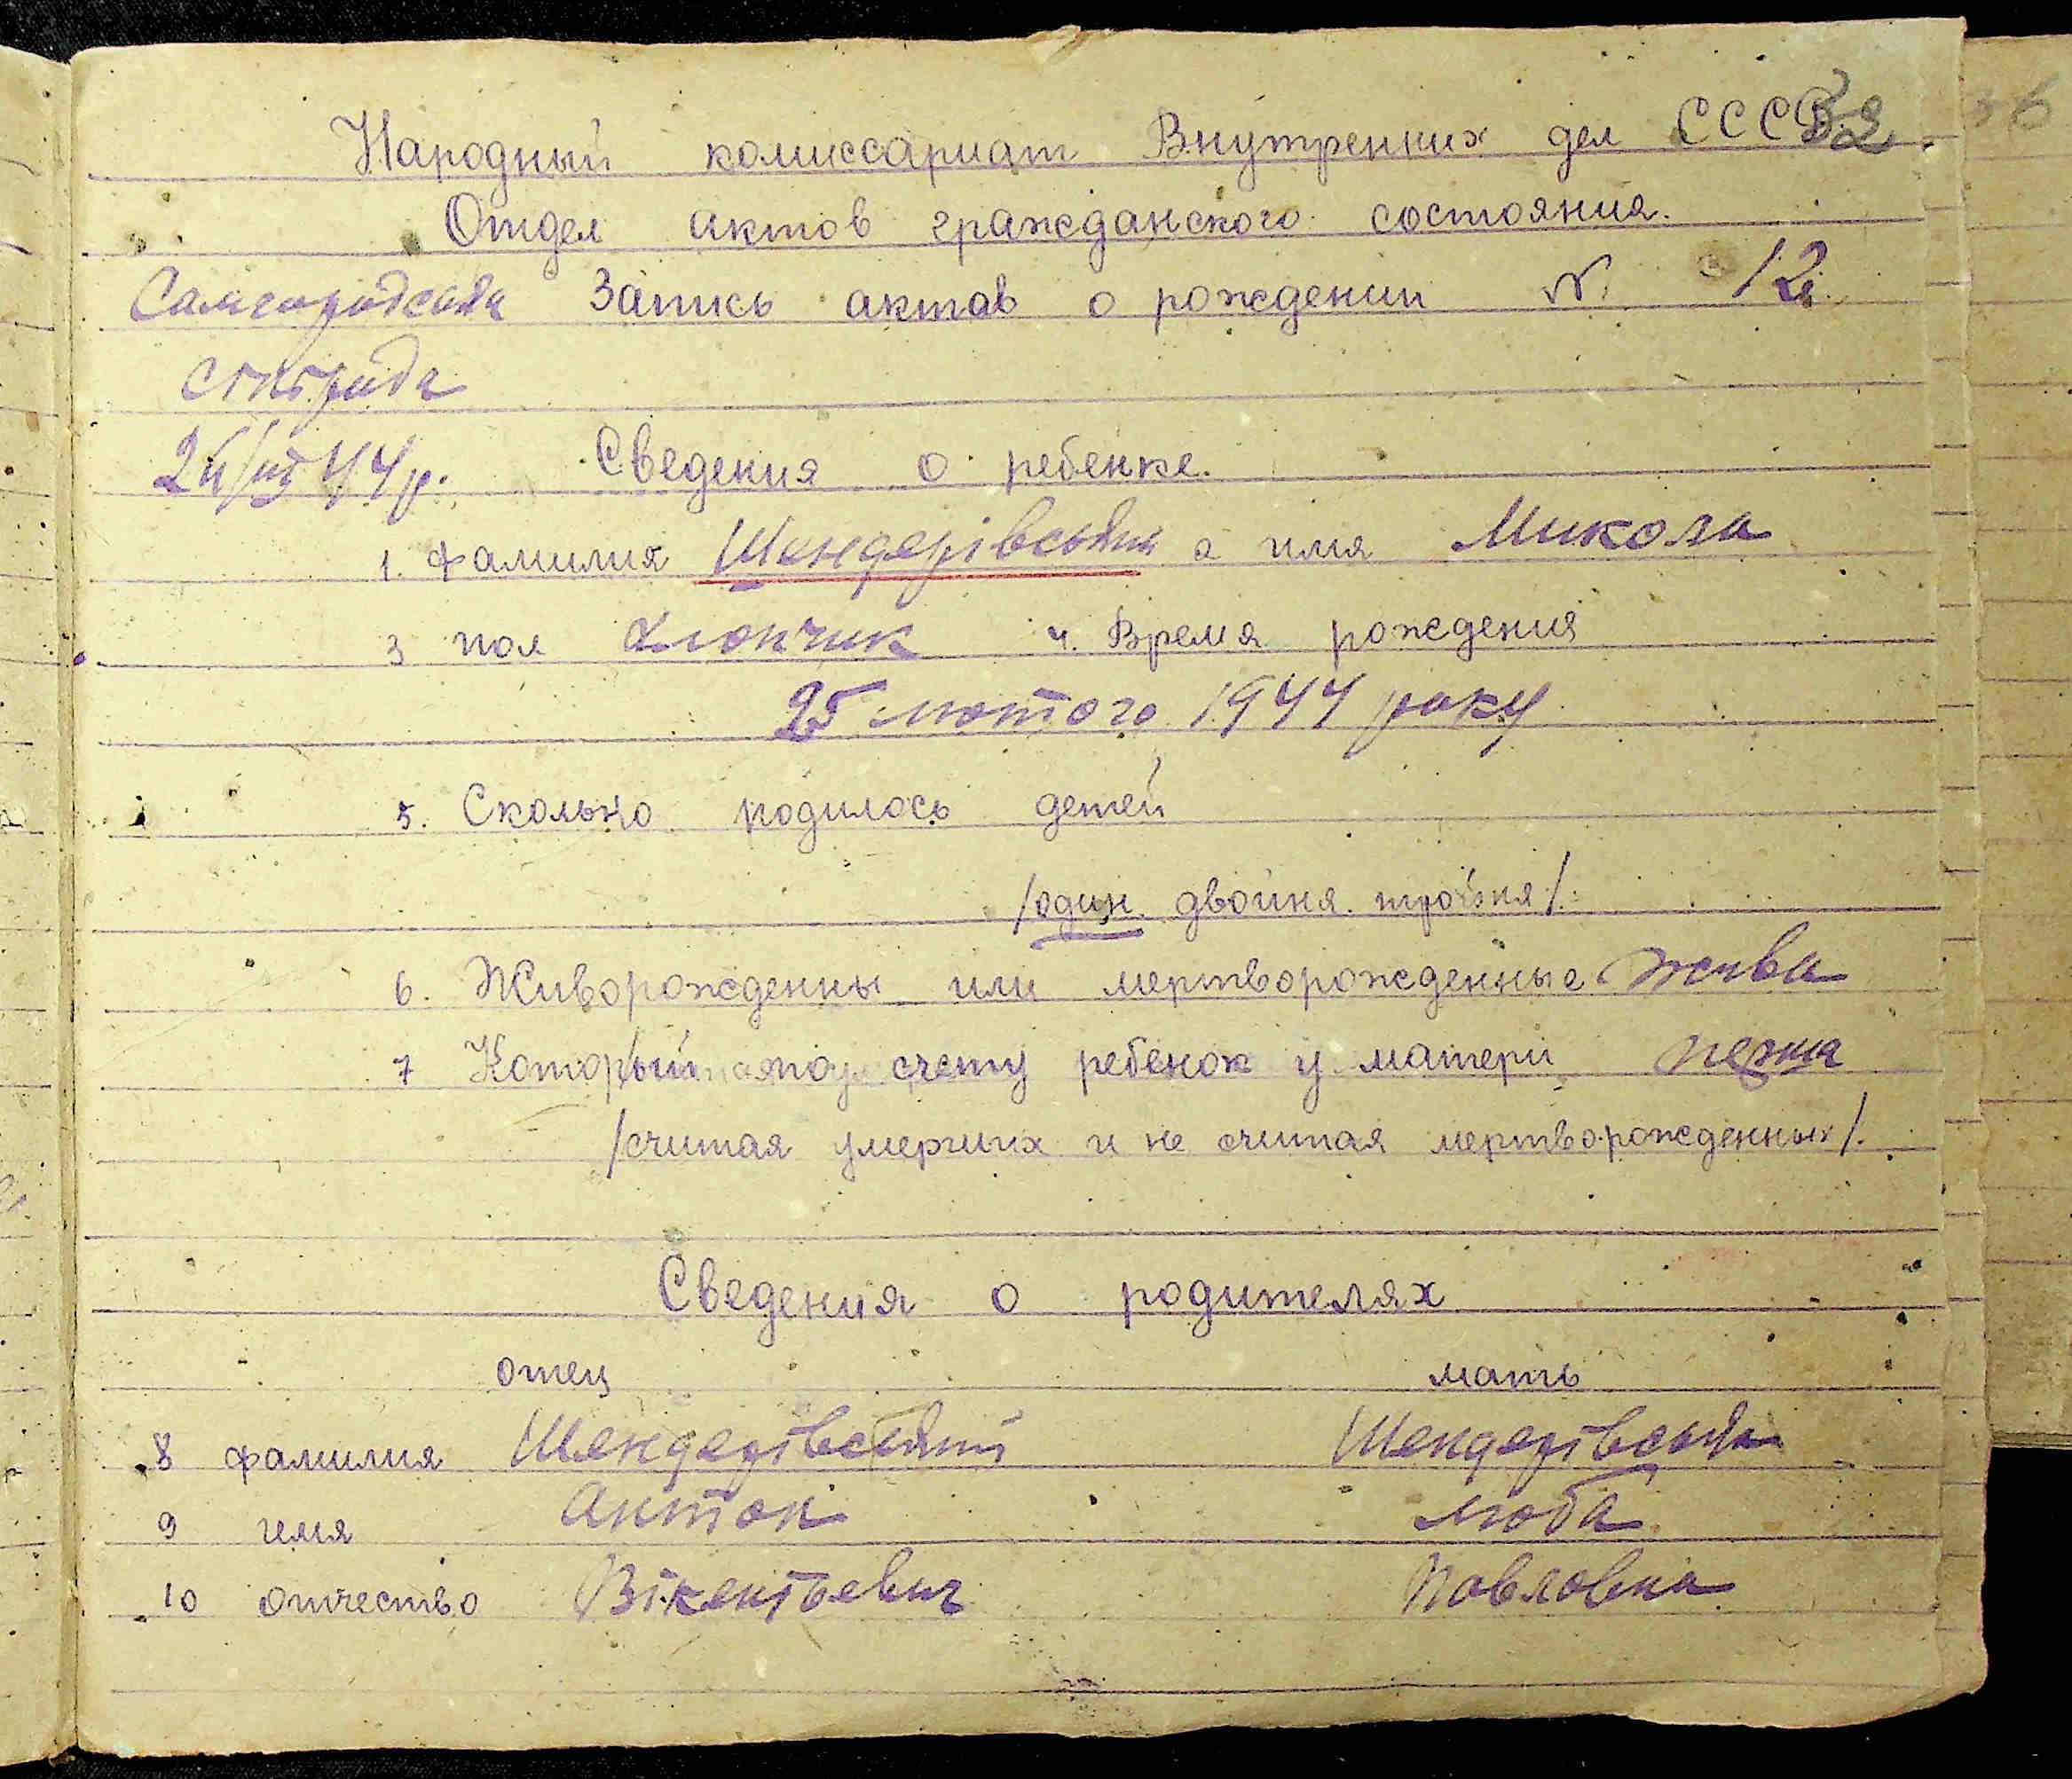 Народный комиссариат Внутренних дел СССР 32
Отдел актов гражданского состояния.
Самгородська Запись актов о рождении N 12
сільрада
44 р. Сведения о ребенке.
1. фамилия Шендерівський 2 имя Микола
3 пол хлопчик 4. Время рождения
25 лютого 1944 року
5. Сколько родилось детей
/один. двойня. тройня/.
6. Живорожденны или мертворожденные жива
7 Который по счету ребенок у матери перша
/считая умерших и не считая мертворожденных/.
Сведения о родителях
отец мать
8 фамилия Шендерівський Шендерівська
9 имя Антон Люба
10 отчество Вікентьевич Повловна
36